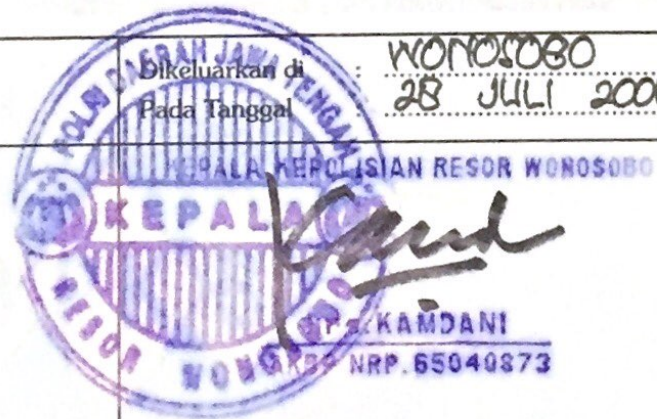 Dikeluarkan di : WONOSOBO
Pada Tanggal : 28 JULI 200
KEPALA KEPOLISIAN RESOR WONOSOBO
POLRI DAERAH JAWA TENGAH
KEPALA
RESOR WONOSOBO
Drs. KAMDANI
AKBP NRP. 65040873